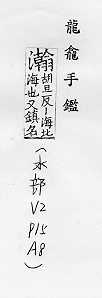 龍龕手鑑
瀚胡旦反｜海北
海也又鎮名
(水部 V2 P15 A8)